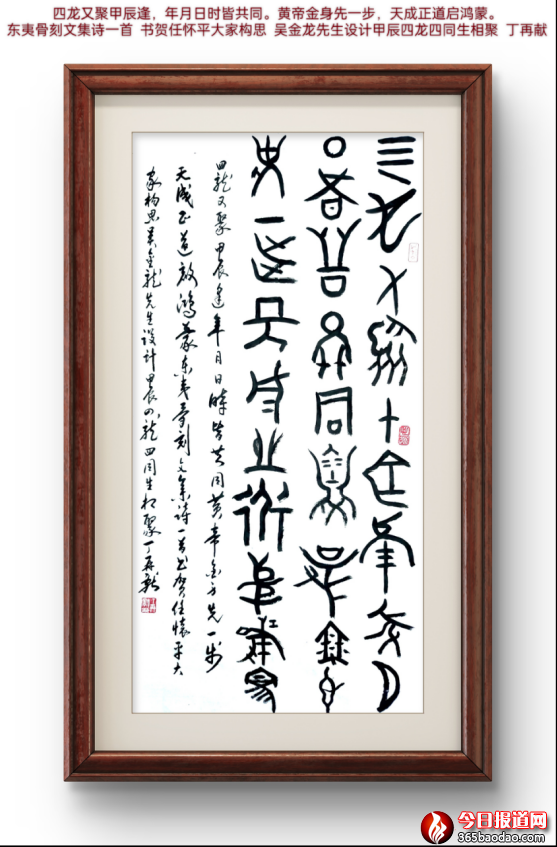 四龙又聚甲辰逢，年月日时皆共同。黄帝金身先一步，天成正道启鸿蒙。
东夷骨刻文集诗一首 书贺任怀平大家构思 吴金龙先生设计甲辰四龙四同生相聚 丁再献
四龍又聚甲辰逢年月
日時皆共同黃帝金身
先一步天成正道啟鴻蒙
四龍又聚甲辰逢年月日時皆共同黄帝金身先一步
天成正道啟鴻蒙东夷骨刻文集诗一首书贺任懷平大
家构思吴金龍先生设计甲辰四龍四同生相聚丁再献
今日报道网
365baodao.com